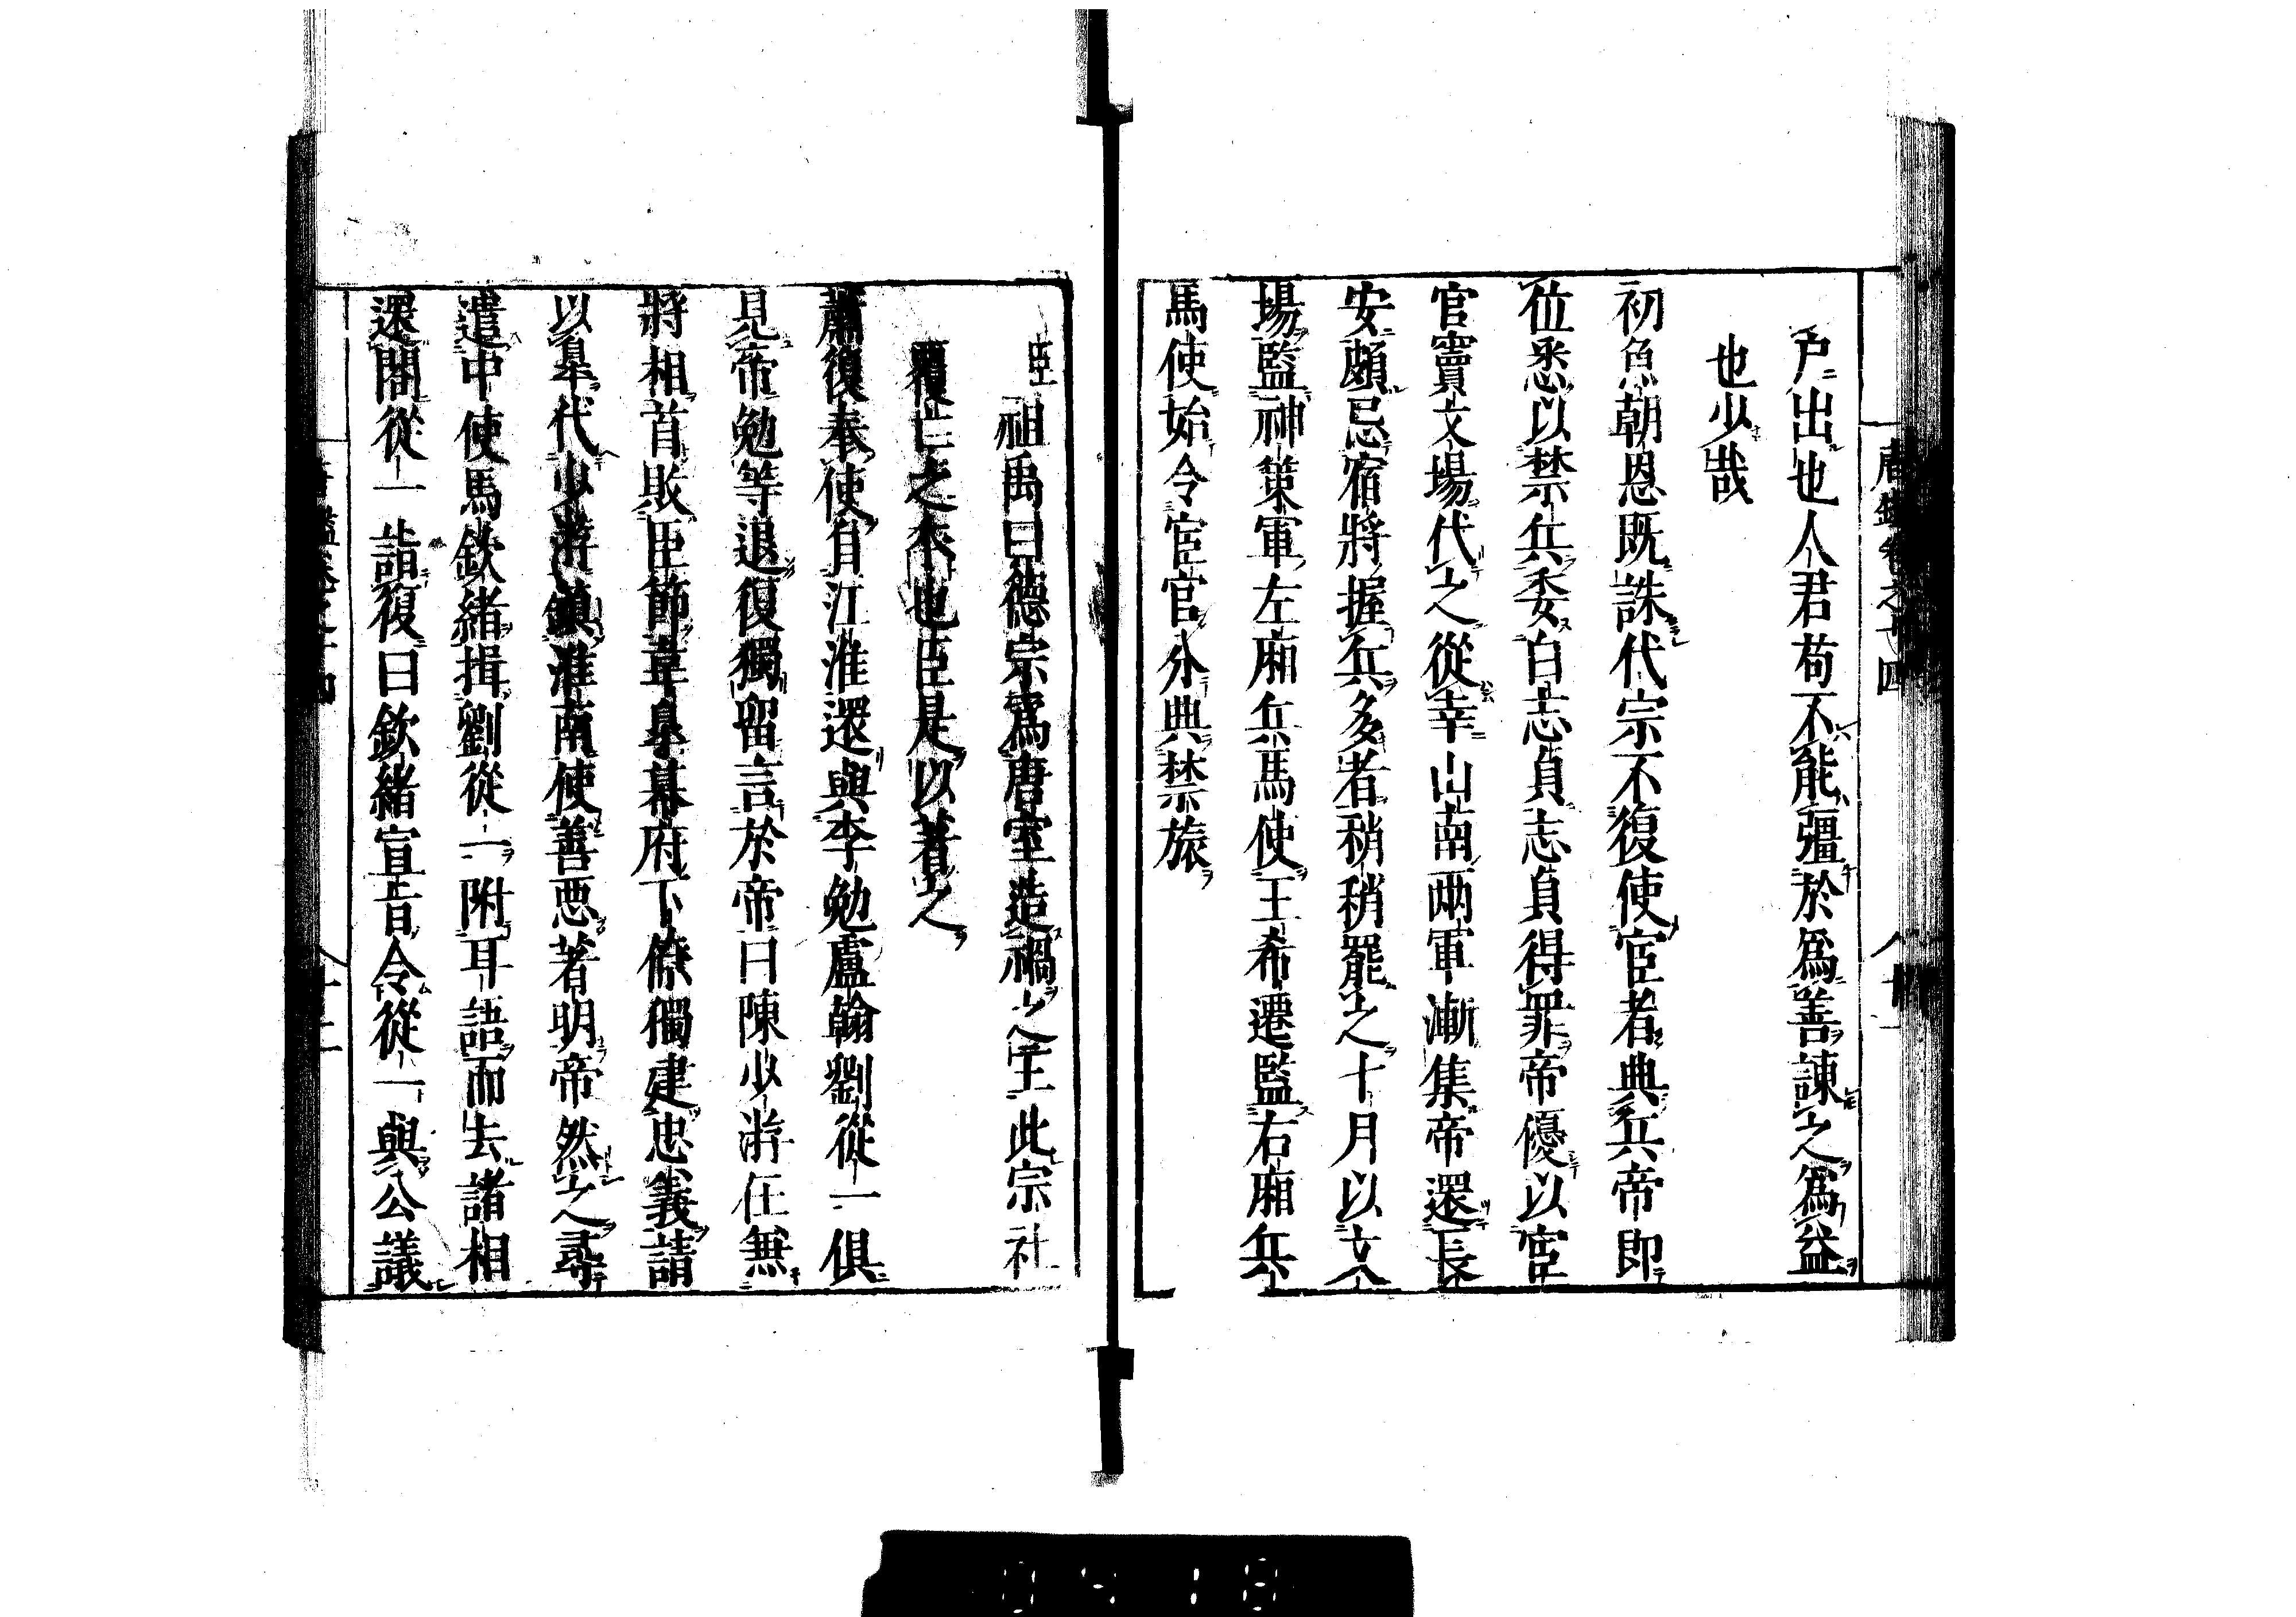 唐鑑卷之十四
戸出也人君苟不能彊於爲善諫之爲益
也少哉
初魚朝恩既誅代宗不復使宦者典兵帝即
位悉以禁兵委白志貞志貞得罪帝優以宦
官竇文場代之從幸山南兩軍漸集帝還長
安頗忌宿將握兵多者稍稍罷之十月以文
場監神策軍左廂兵馬使王希遷監右廂兵
馬使始令宦官分典禁旅
臣祖禹曰德宗爲唐室造禍之主此宗社
覆亡之本也臣是以著之
蕭復奉使自江淮還與李勉盧翰劉從一俱
見帝勉等退復獨留言於帝曰陳少游任無
將相首敗臣節韋皐幕府下僚獨建忠義請
以皐代少游鎮淮南使善惡著明帝然之尋
遣中使馬欽緒揖劉從一附耳語而去諸相
還閤從一詣復曰欽緒宣旨令從一與公議